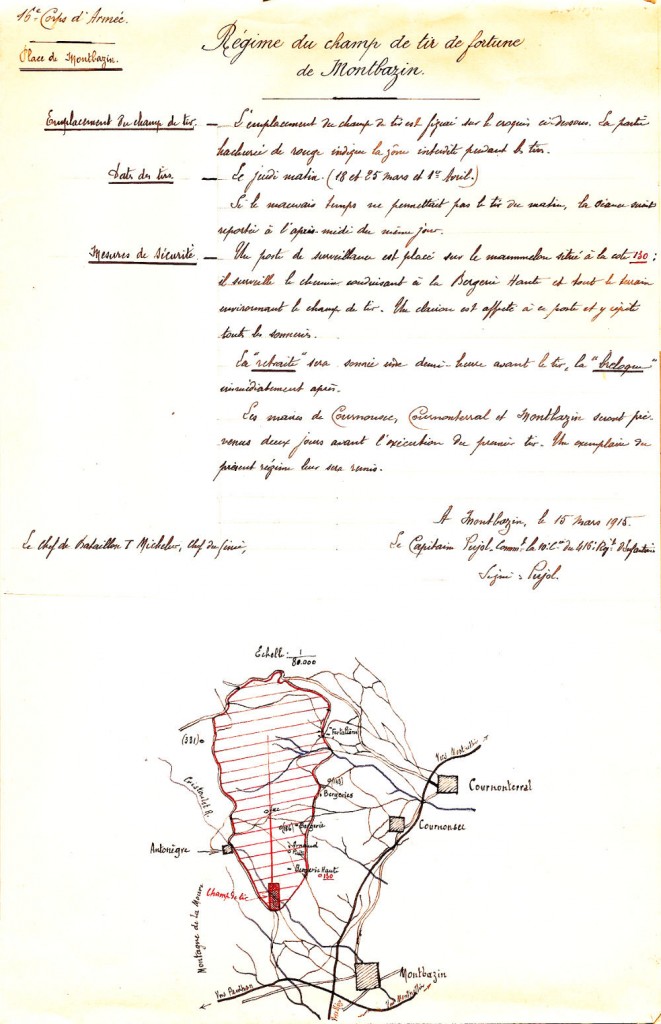 16e Corps d'Armée.
Place de Montbazin.
Régime du champ de tir de fortune
de Montbazin.
Emplacement du champ de tir. — L'emplacement du champ de tir est figuré sur le croquis ci-dessous. La partie
hachurée de rouge indique la zône interdite pendant le tir.
Date des tirs — Le jeudi matin. (18 et 25 mars et 1er Avril.)
Si le mauvais temps ne permettait pas le tir du matin, la séance serait
reportée à l'après-midi du même jour.
Mesures de Sécurité. — Un poste de surveillance est placé sur le mammelon situé à la cote 130 ;
il surveille le chemin conduisant à la Bergerie Haute et tout le terrain
environnant le champ de tir. Un clairon est affecté à ce poste et y répète
toutes les sonneries.
La "retraite" sera sonnée une demi-heure avant le tir, la "breloque"
immédiatement après.
Les maires de Cournonsec, Cournonterral et Montbazin seront pré-
venus deux jours avant l'exécution du premier tir. Un exemplaire du
présent régime leur sera remis.
A Montbazin, le 15 mars 1915.
Le Chef de Bataillon T Micheler, Chef du Génie,
Le Capitaine Pujol, Commt la 10e Cie du 416e Régt d'Infanterie
Signé : Pujol.
Echelle : 1/80.000
(331)
Vers Montpellier
Cournonterral
Bergeries
Cournonsec
(186) Bergerie
d'Arnaud
Antonègre
Bergerie Haute
130
Champ de tir
Montagne de la Moure
Montbazin
Vers Poussan
Vers Montpellier